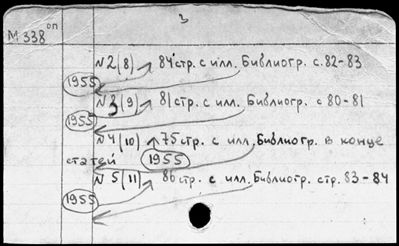 3
М 338 оп
№ 2 (8) 84 стр. с илл. Библиогр. с. 82-83
1955
№ 3 (9) 81 стр. с илл. Библиогр. с 80-81
1955
№ 4 (10) 75 стр. с илл. Библиогр. в конце
статей 1955
№ 5 (11) 86 стр. с илл. Библиогр. стр. 83-84
1955